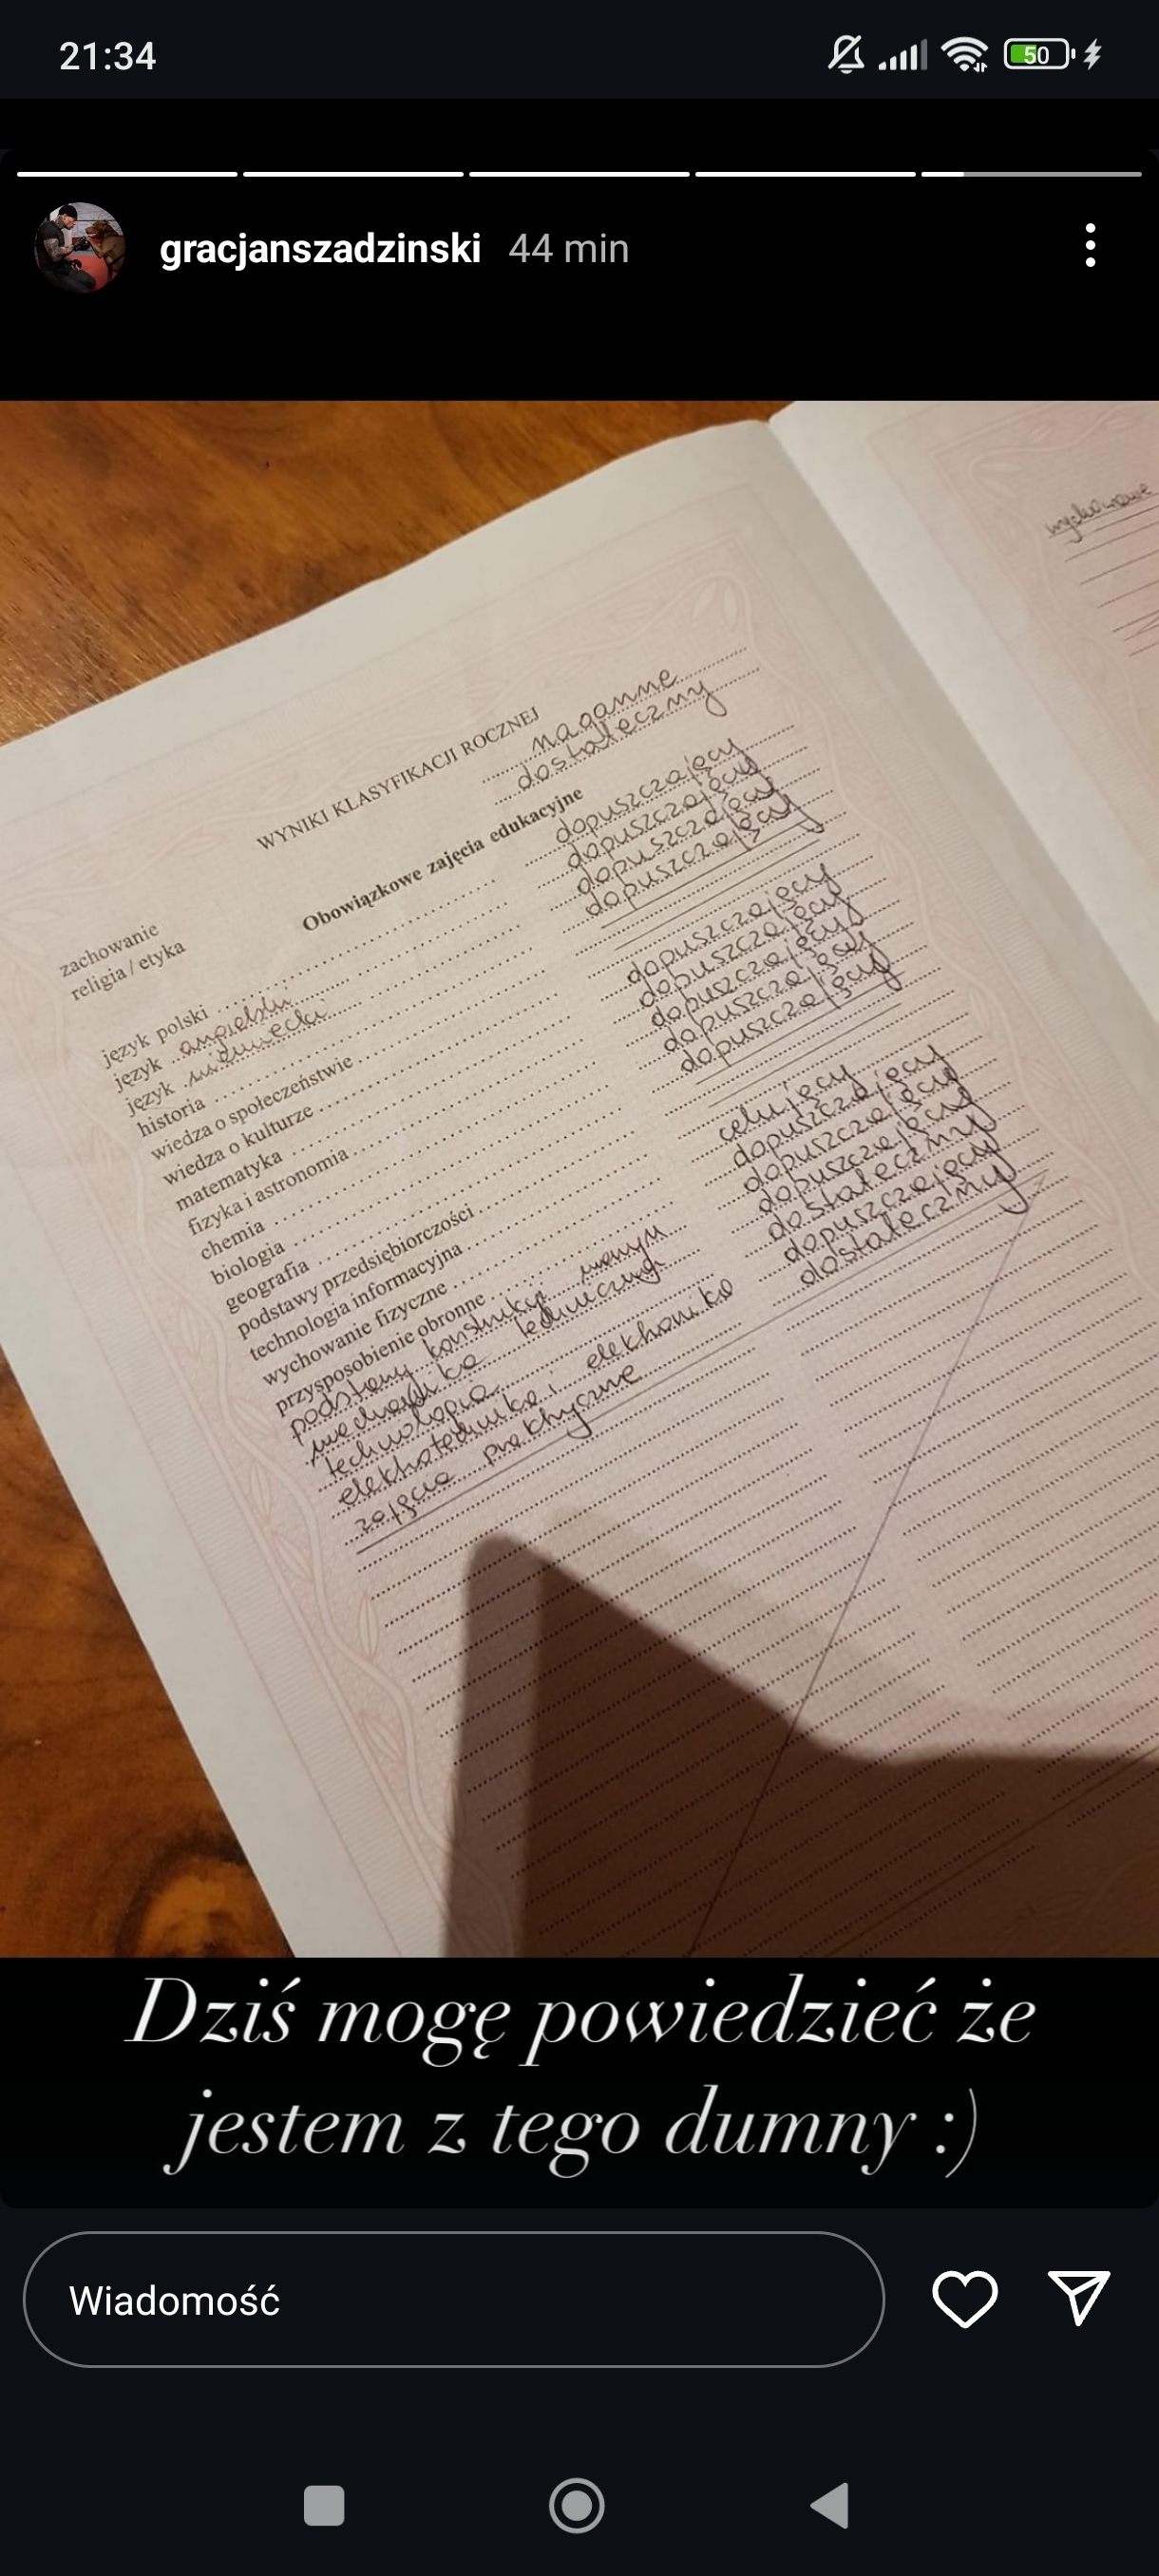 21:34
50
gracjanszadzinski 44 min
wychowanie
WYNIKI KLASYFIKACJI ROCZNEJ
zachowanie naganne
religia / etyka dostateczny
Obowiązkowe zajęcia edukacyjne
język polski dopuszczający
język angielski dopuszczający
język niemiecki dopuszczający
historia dopuszczający
wiedza o społeczeństwie
wiedza o kulturze
matematyka dopuszczający
fizyka i astronomia dopuszczający
chemia dopuszczający
biologia dopuszczający
geografia dopuszczający
podstawy przedsiębiorczości
technologia informacyjna
wychowanie fizyczne celujący
przysposobienie obronne dopuszczający
podstawy konstrukcji maszyn dopuszczający
mechanika techniczna dopuszczający
technologia dostateczny
elektrotechnika i elektronika dopuszczający
zajęcia praktyczne dostateczny
Dziś mogę powiedzieć że
jestem z tego dumny :)
Wiadomość